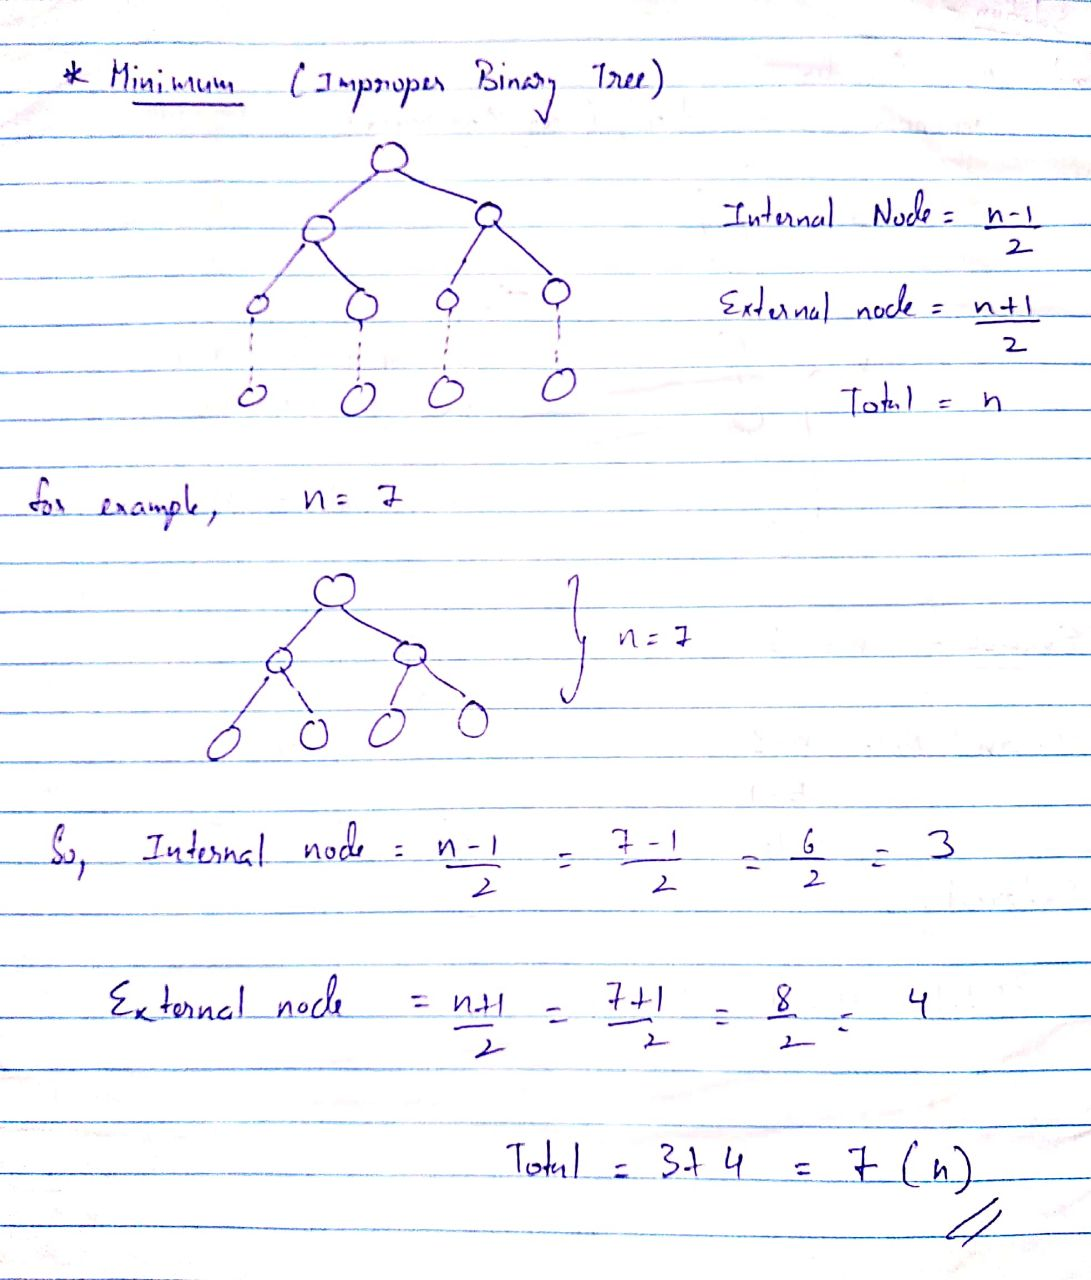 * Minimum (Improper Binary Tree)
Internal Node = n-1/2
External node = n+1/2
Total = n
for example, n = 7
n = 7
So, Internal node = n-1/2 = 7-1/2 = 6/2 = 3
External node = n+1/2 = 7+1/2 = 8/2 = 4
Total = 3+4 = 7 (n)